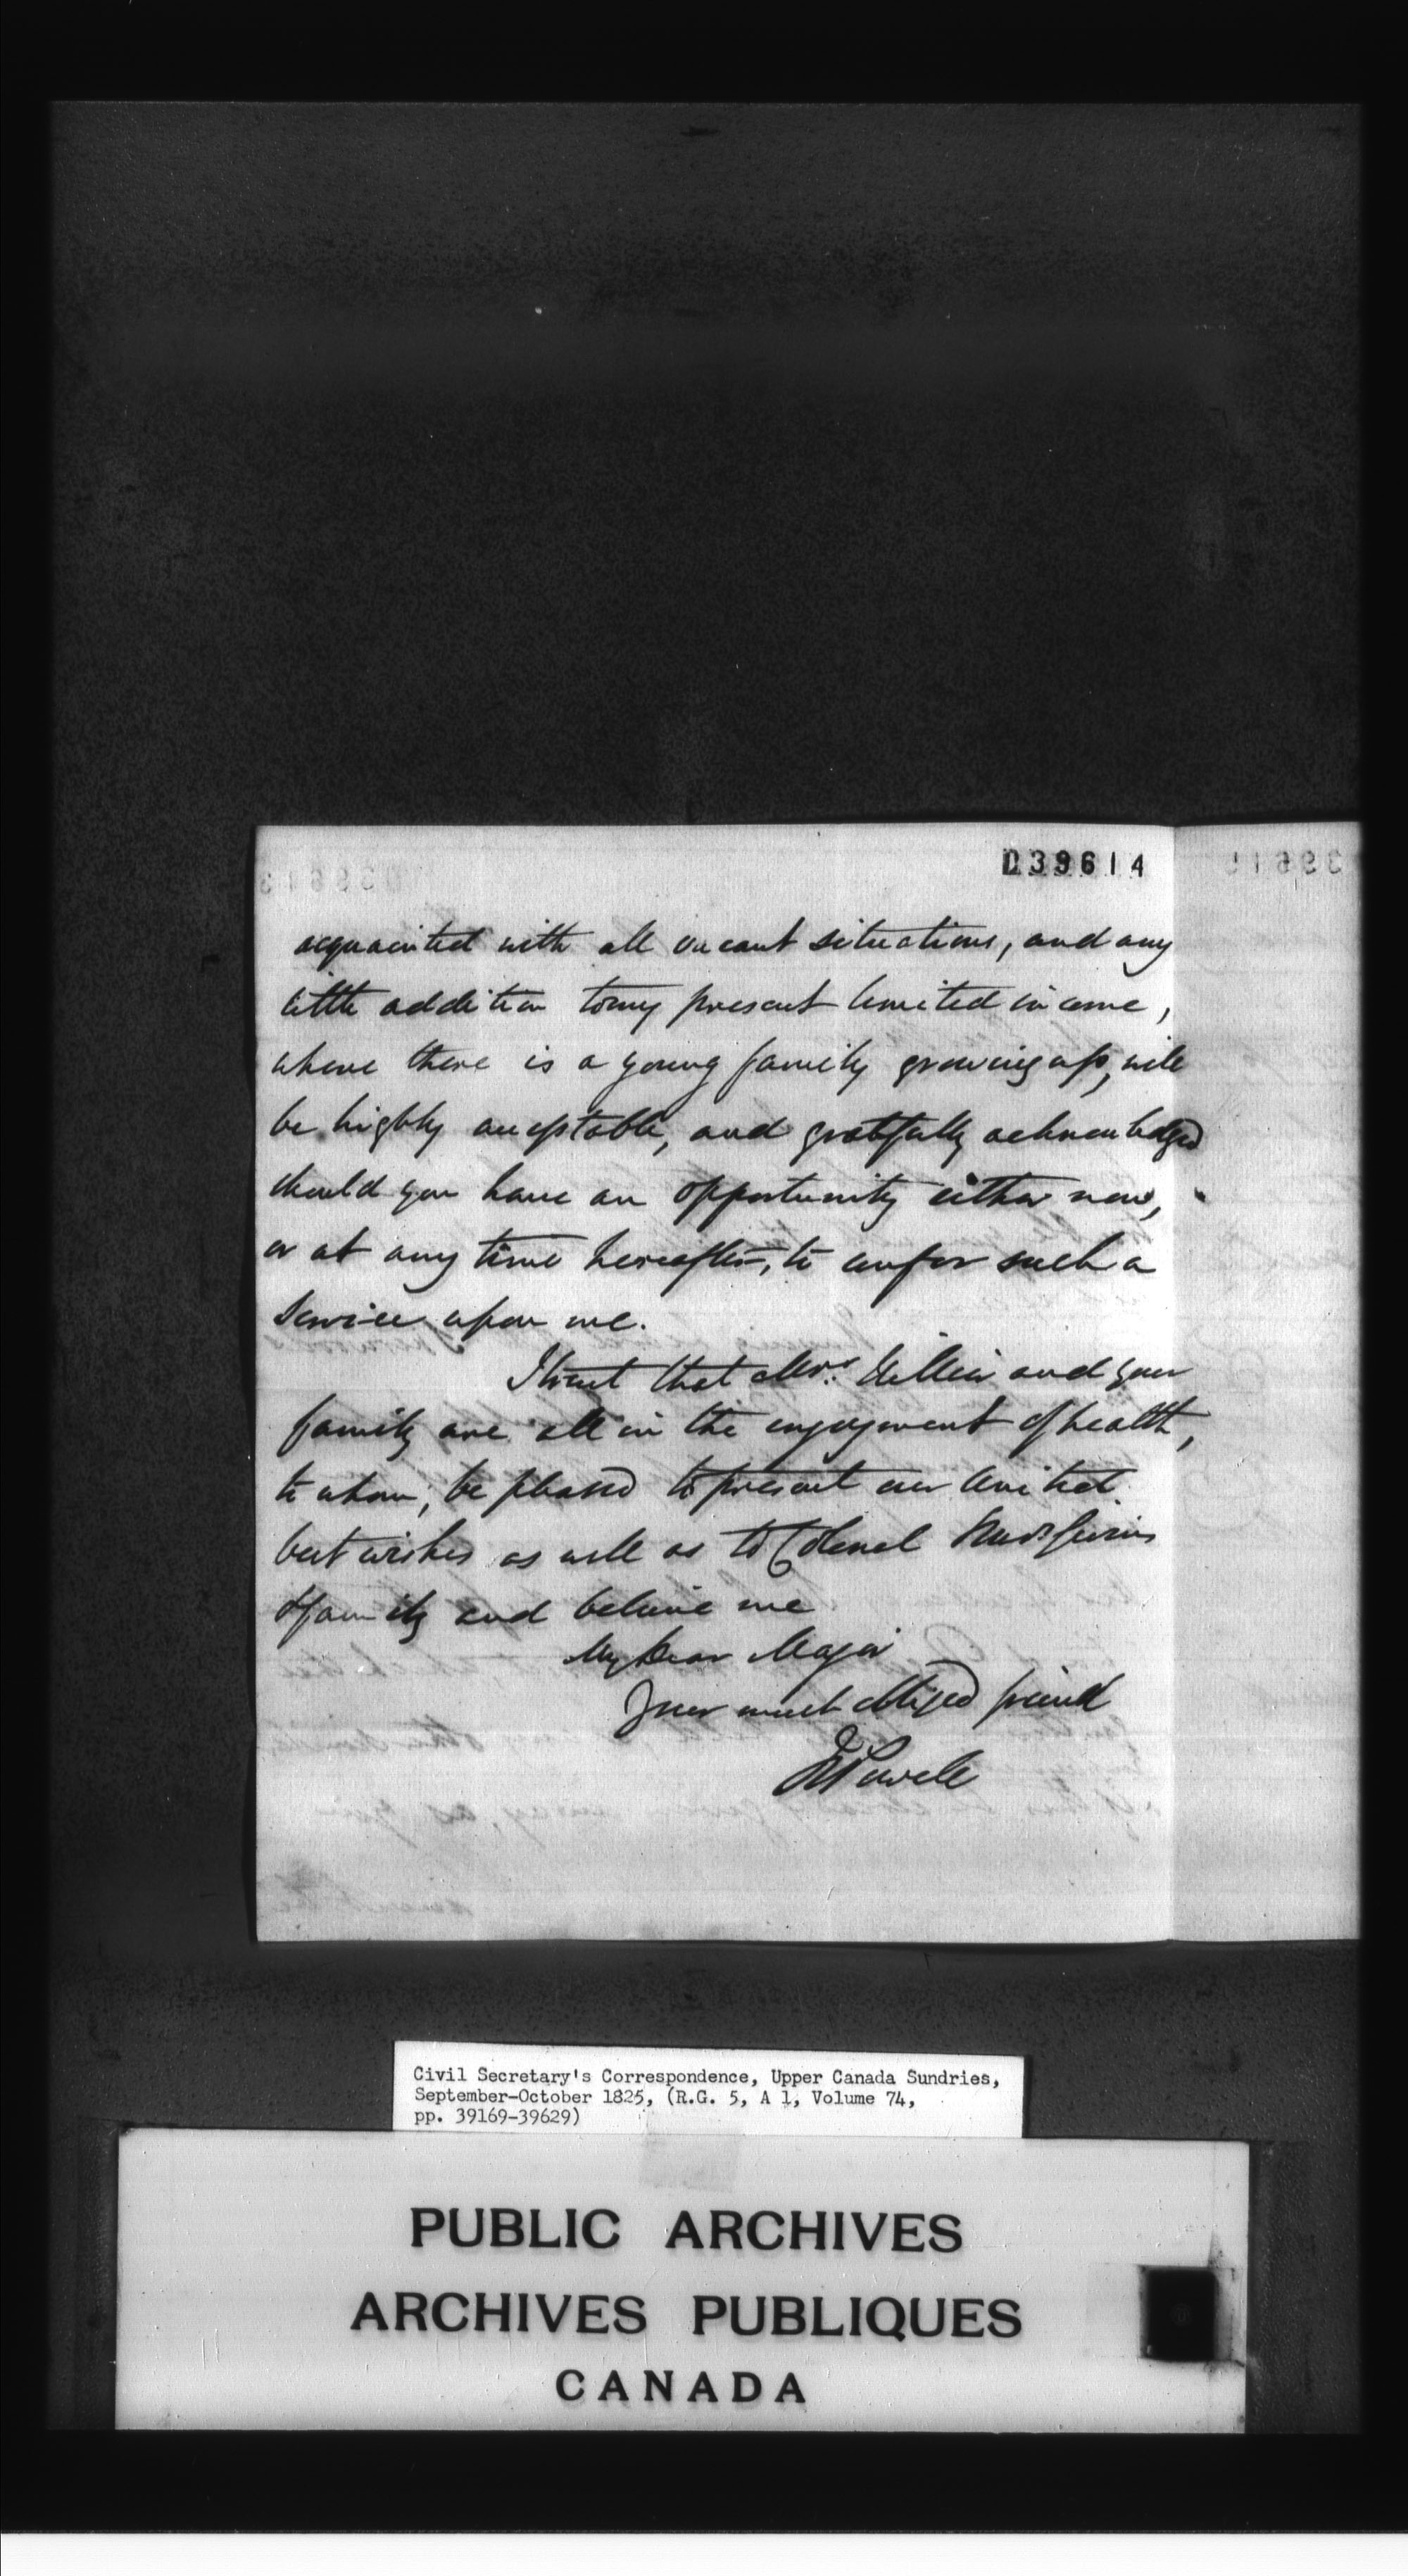 039614
acquainted with all vacant situations, and any
little addition to my present limited income,
where there is a young family growing up, will
be highly acceptable, and gratefully acknowledged
should you have an opportunity either now,
or at any time hereafter, to confer such a
service upon me.
I trust that Mrs. Hillier and your
family are all in the enjoyment of health,
to whom, be pleased to present our united
best wishes as well as to Colonel
& family and believe me
My Dear Major
Your much obliged friend
Powell
Civil Secretary's Correspondence, Upper Canada Sundries,
September-October 1825, (R.G. 5, A 1, Volume 74,
pp. 39169-39629)
PUBLIC ARCHIVES
ARCHIVES PUBLIQUES
CANADA